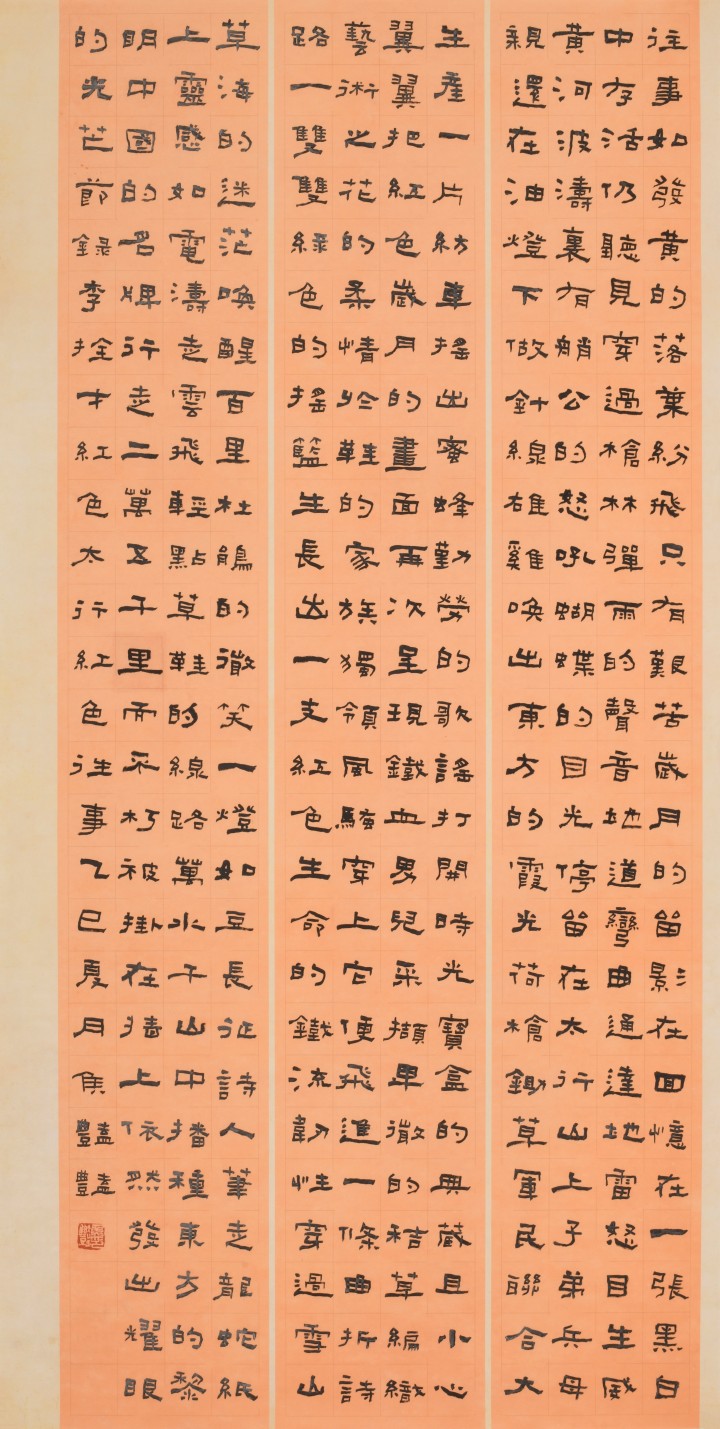 往事如發黄的落葉紛飛只有艱苦歲月的留影在回憶在一張黑白
中存活仍聽見穿過槍林彈雨的聲音地道彎曲通達地雷怒目生威
黄河波濤裏有艄公的怒吼蝴蝶的目光停留在太行山上子弟兵母
親還在油燈下做針線雄雞喚出東方的霞光荷槍鋤草軍民聯合大
生産一片紡車搖出蜜蜂勤勞的歌謠打開時光寶盒的典藏且小心
翼翼把紅色歲月的畫面再次呈現鐵血男兒采擷卑微的秸草編織
藝術之花的柔情於鞋的家族獨領風騷穿上它便飛進一條曲折詩
路一雙雙緑色的搖籃生長出一支紅色生命的鐵流韌性穿過雪山
草海的迷茫喚醒百里杜鵑的微笑一燈如豆長征詩人筆走龍蛇紙
上靈感如電濤走雲飛輕點草鞋的線路萬水千山中播種東方的黎
明中國的名牌行走二萬五千里而不朽被掛在牆上依然發出耀眼
的光芒節錄李拴才紅色太行紅色往事乙巳夏月焦豔豔